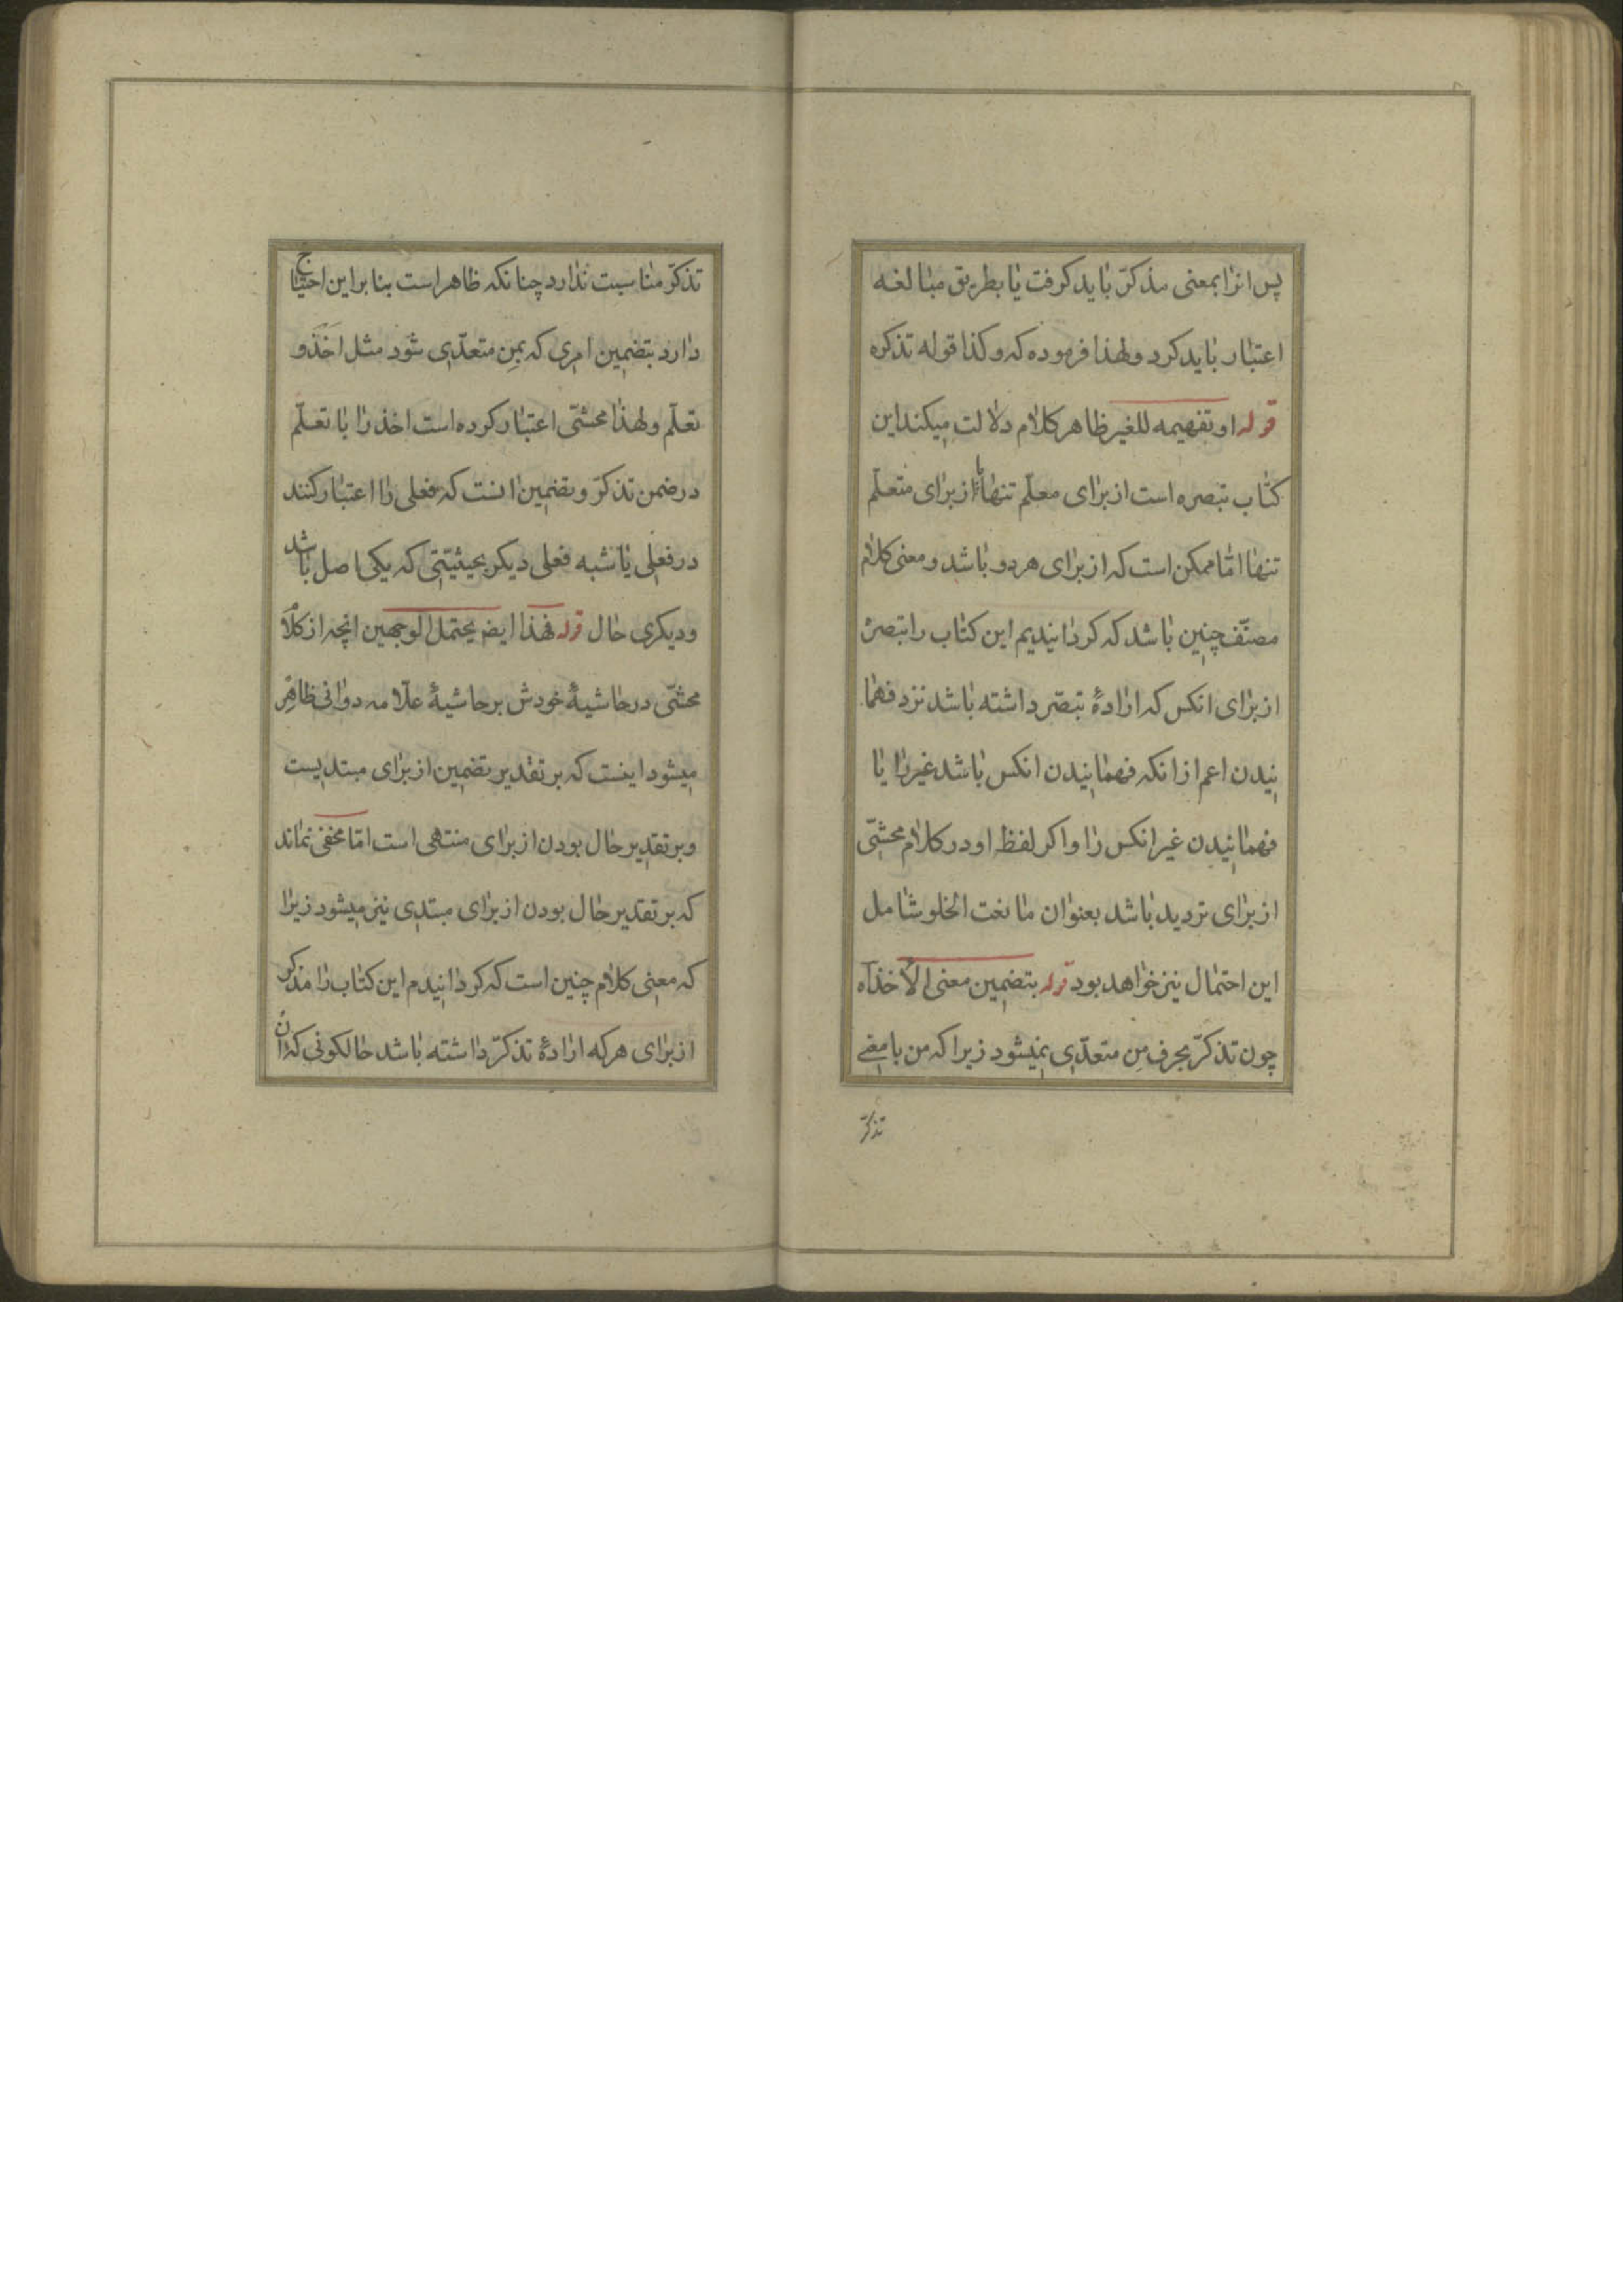 پس انرا بمعنی مذکّر باید کرفت یا بطریق مبالغه
اعتبار باید کرد ولهذا فرموده که وکذا قوله تذکره
قوله او تفهیمه للغیر ظاهر کلام دلالت میکند این
کتاب تبصره است از برای معلّم تنها یا از برای متعلّم
تنها امّا ممکن است که از برای هر دو باشد ومعنی کلام
مصنّف چنین باشد که کردانیدیم این کتاب را تبصره
از برای انکس که ارادهٔ تبصّر داشته باشد نزد فهما
نیدن اعم از انکه فهمانیدن انکس باشد غیر را یا
فهمانیدن غیر انکس را واکر لفظ او در کلام محشّی
از برای تردید باشد بعنوان مانعت الخلو شامل
این احتمال نیز خواهد بود قوله بتضمین معنی الاخذ آه
چون تذکّر بحرف مِن متعدّی نمیشود زیرا که من با معنی
تذکّر
تذکّر مناسبت ندارد چنانکه ظاهر است بنا براین احتیاج
دارد بتضمین امری که بمِن متعدّی شود مثل اَخَذَ و
تعلّم ولهذا محشّی اعتبار کرده است اخذ را با تعلّم
در ضمن تذکّر وتضمین انست که فعلی را اعتبار کنند
در فعلی یا شبه فعلی دیکر بحیثیّتی که یکی اصل باشد
ودیکری حال قوله فهذا ایض یحتمل الوجهین انچه از کلام
محشّی در حاشیهٔ خودش بر حاشیهٔ علّامه دوانی ظاهر
میشود اینست که بر تقدیر تضمین از برای مبتدیست
وبر تقدیر حال بودن از برای منتهی است امّا مخفی نماند
که بر تقدیر حال بودن از برای مبتدی نیز میشود زیرا
که معنی کلام چنین است که کردانیدم این کتاب را مذکّر
از برای هرکه ارادهٔ تذکّر داشته باشد حالکونی که ان